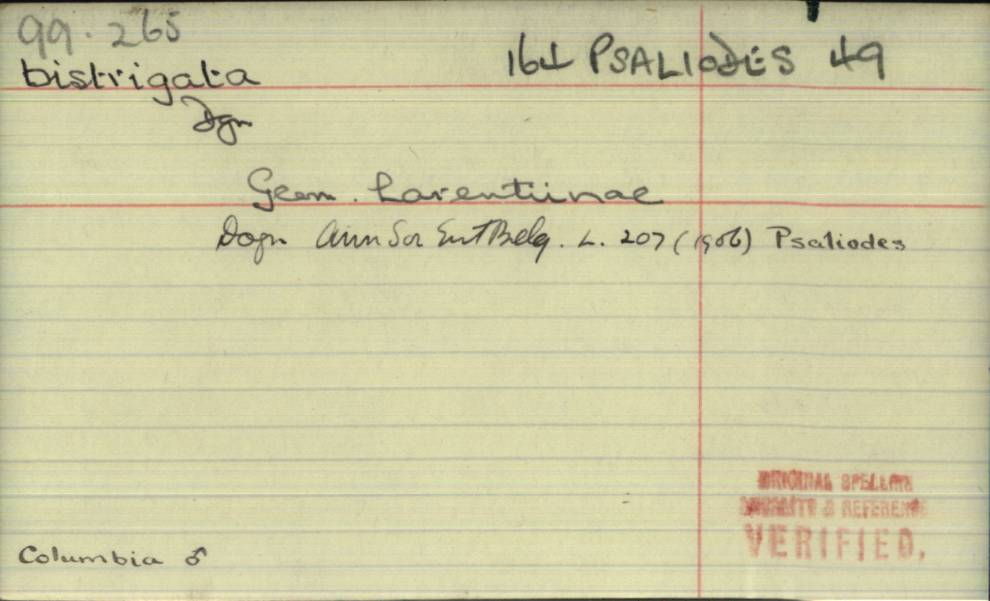 99.265
bistrigata 164 PSALIODES 49
Dgn
Geom. Larentiinae
Dogn Ann Soc Ent Belg. L. 207 (1906) Psaliodes
ORIGINAL SPELLING
LOCALITY & REFERENCE
VERIFIED.
Columbia ♂